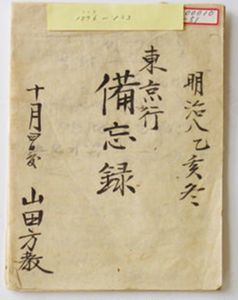 明治八乙亥冬
東京行
備忘録
十月
山田方教